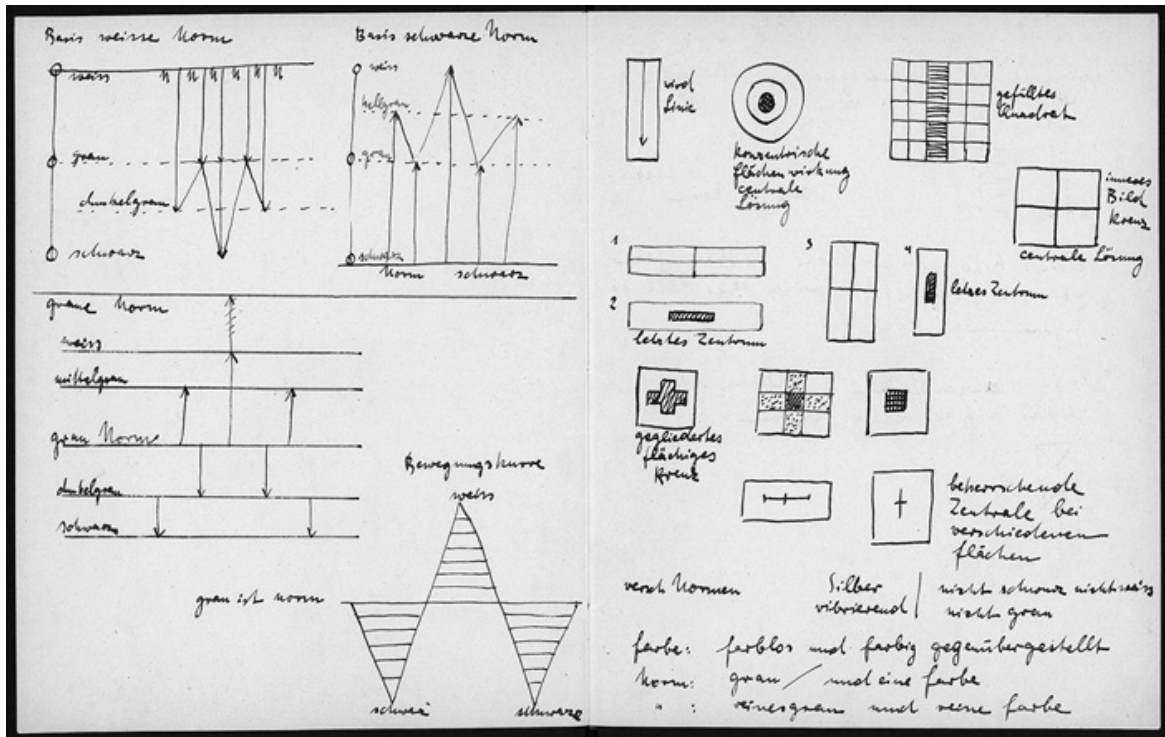 Basis weisse Norm
weiss
n n n n n n
grau
dunkelgrau
schwarz
Basis schwarze Norm
weiss
hellgrau
grau
schwarz
Norm schwarz
graue Norm
weiss
mittelgrau
grau Norm
dunkelgrau
schwarz
Bewegungskurve
weiss
grau ist norm
schwarz
schwarze
wird
Linie
konzentrische
flächenwirkung
centrale
Lösung
gefülltes
Quadrat
inneres
Bild
Kreuz
centrale Lösung
1
2
letztes Zentrum
3
4
letztes Zentrum
gegliedertes
flächiges
Kreuz
beherrschende
Zentrale bei
verschiedenen
flächen
versch Normen
Silber
vibrierend
nicht schwarz nicht weiss
nicht grau
farbe: farblos und farbig gegenübergestellt
Norm: grau / und eine farbe
" : reines grau und reine farbe